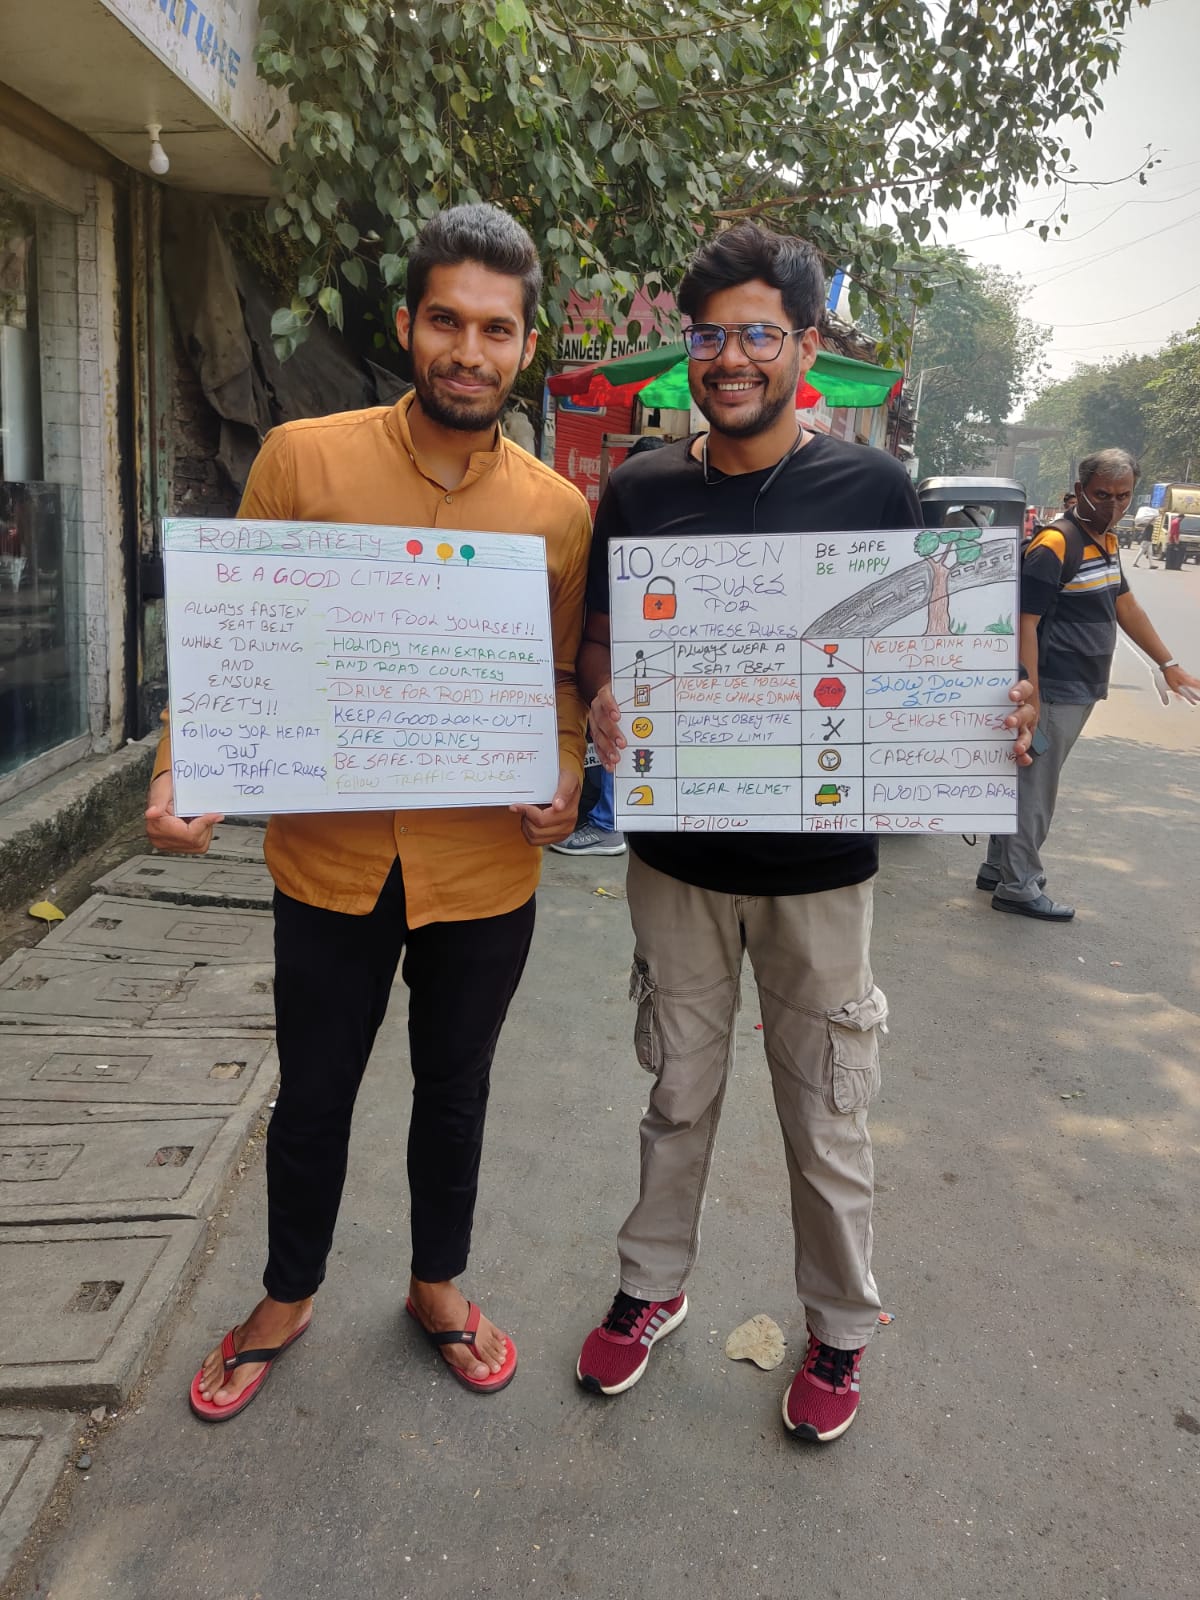 ITURE
SANDEEP ENGIN
ROAD SAFETY
BE A GOOD CITIZEN!
ALWAYS FASTEN
SEAT BELT
WHILE DRIVING
AND
ENSURE
SAFETY!!
FOLLOW YOR HEART
BUT
FOLLOW TRAFFIC RULES
TOO
DON'T FOOL YOURSELF!!
HOLIDAY MEAN EXTRA CARE...
AND ROAD COURTESY
DRIVE FOR ROAD HAPPINESS
KEEP A GOOD LOOK-OUT!
SAFE JOURNEY
BE SAFE. DRIVE SMART.
FOLLOW TRAFFIC RULES.
10 GOLDEN
RULES
FOR
LOCK THESE RULES
BE SAFE
BE HAPPY
ALWAYS WEAR A
SEAT BELT
NEVER DRINK AND
DRIVE
NEVER USE MOBILE
PHONE WHILE DRIVIN
STOP
SLOW DOWN ON
STOP
50
ALWAYS OBEY THE
SPEED LIMIT
VEHICLE FITNESS
CAREFUL DRIVING
WEAR HELMET
AVOID ROAD RAGE
FOLLOW TRAFFIC RULE